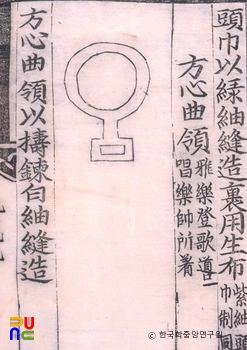 頭巾以綠紬縫造裏用生布
紫紬頭
巾制同
方心曲領
雅樂登歌導
唱樂師所著
方心曲領以擣鍊白紬縫造
© 한국학중앙연구원